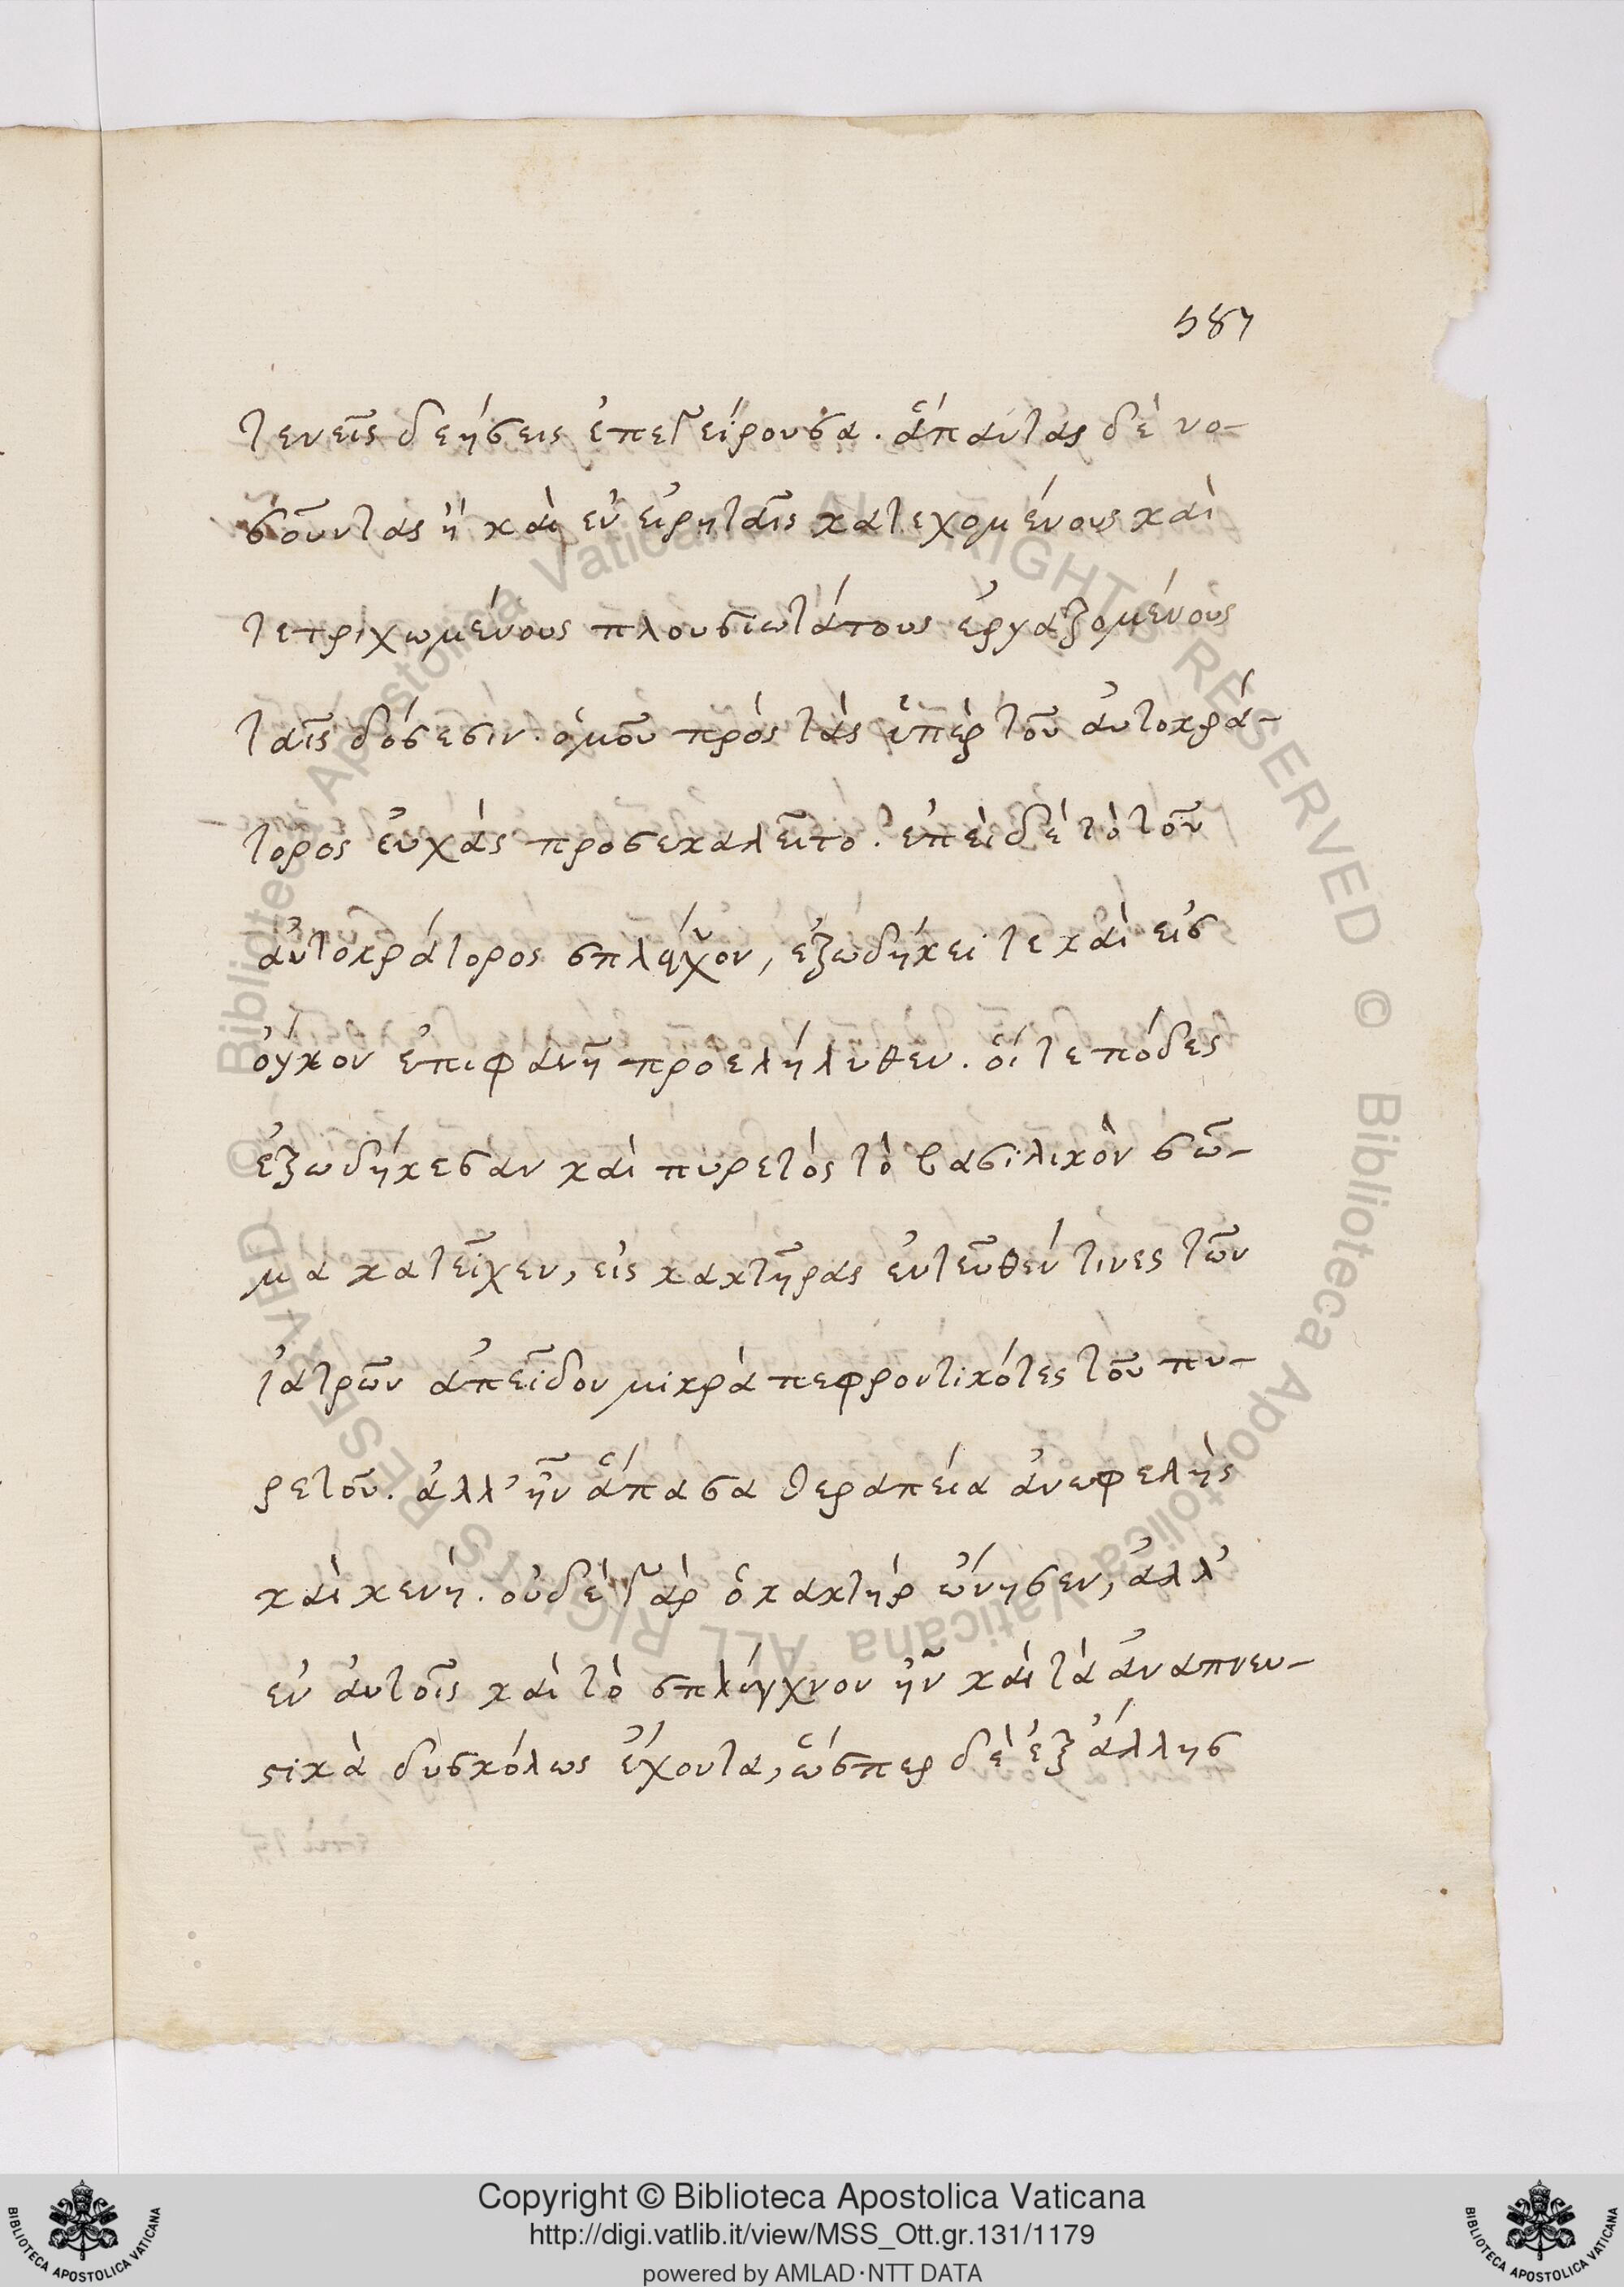 587
τενεῖς δεήσεις ἐπεγείρουσα. ἅπαντας δὲ νο-
σοῦντας ἢ καὶ ἐν εἱρηταῖς κατεχομένους καὶ
τετριχωμένους πλουσιωτάτους ἐργαζομένους
ταῖς δόσεσιν. ὁμοῦ πρὸς τὰς ὑπὲρ τοῦ αὐτοκρά-
τορος εὐχὰς προσεκαλεῖτο. ἐπεὶ δὲ τὸ τοῦ
αὐτοκράτορος σπλάγχνον, ἐξωδήκει τε καὶ εἰς
ὄγκον ἐπιφανῆ προελήλυθεν. οἵ τε πόδες
ἐξωδήκεσαν καὶ πυρετὸς τὸ βασιλικὸν σῶ-
μα κατεῖχεν, εἰς κακτῆρας ἐντεῦθέν τινες τῶν
ἰατρῶν ἀπεῖδον μικρὰ πεφροντικότες τοῦ πυ-
ρετοῦ. ἀλλ' ἦν ἅπασα θεραπεία ἀνωφελὴς
καὶ κενή. οὐδὲ γὰρ ὁ κακτὴρ ὤνησεν, ἀλλ'
ἐν αὐτοῖς καὶ τὸ σπλάγχνον ἦν καὶ τὰ ἀναπνευ-
στικὰ δυσκόλως ἔχοντα, ὥσπερ δὲ ἐξ ἄλλης
Copyright © Biblioteca Apostolica Vaticana
http://digi.vatlib.it/view/MSS_Ott.gr.131/1179
powered by AMLAD·NTT DATA
BIBLIOTECA APOSTOLICA VATICANA
BIBLIOTECA APOSTOLICA VATICANA
© Biblioteca Apostolica Vaticana ALL RIGHTS RESERVED © Biblioteca Apostolica Vaticana ALL RIGHTS RESERVED